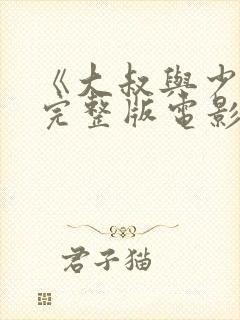 《大叔與少
完整版電影
君子猫